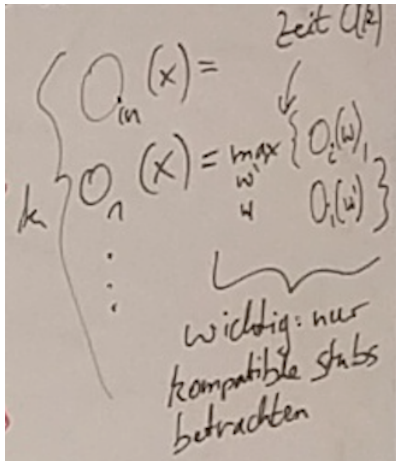 Zeit O(k)
O_in (x) =
k { O_1 (x) = max { O_i(w),
w' w O_i(w') }
⋮
wichtig: nur
kompatible stubs
betrachten